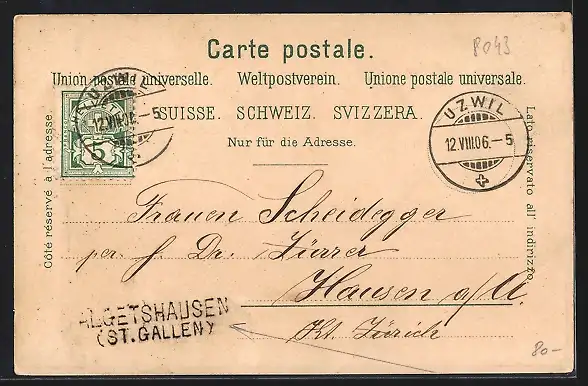 Carte postale.
8043
Union postale universelle. Weltpostverein. Unione postale universale.
SUISSE. SCHWEIZ. SVIZZERA.
Nur für die Adresse.
Côté réservé à l'adresse.
Lato riservato all' indirizzo.
UZWIL
12.VIII.06.-5
5
UZWIL
12.VIII.06.-5
Frauen Scheidegger
Hausen a/A.
Kt. Zürich
ALGETSHAUSEN
(ST. GALLEN)
80-